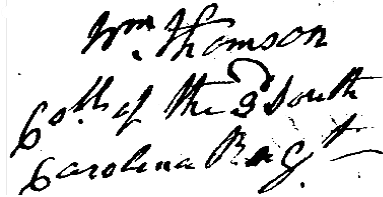 Wm. Thomson
Coll. of the 3d South
Carolina Regt.